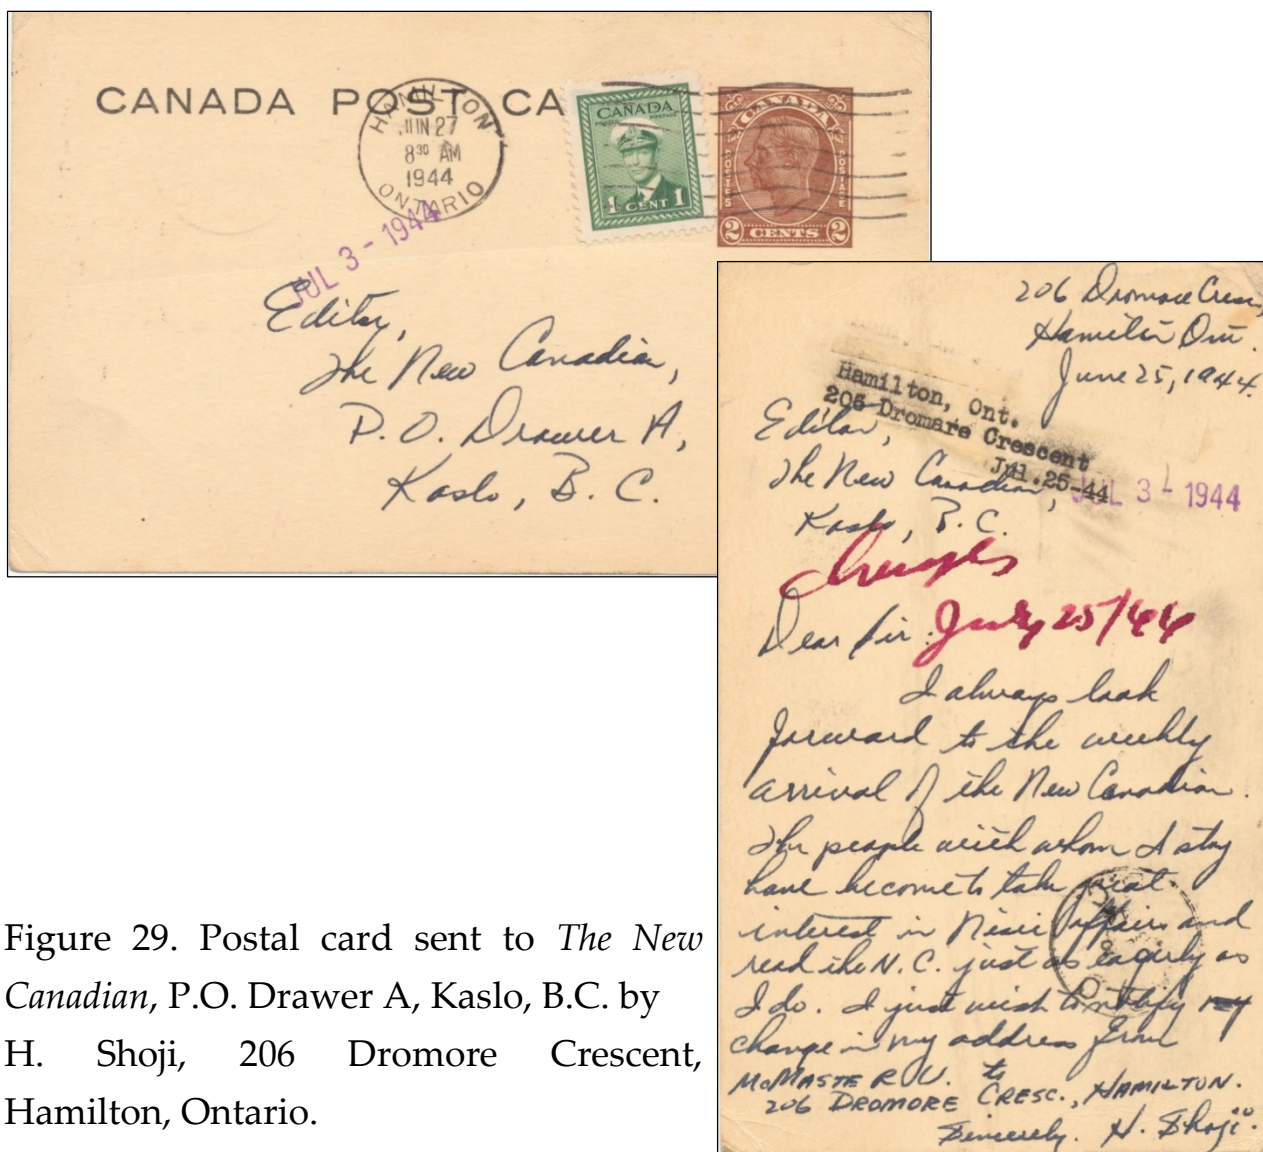 CANADA POST CA
HAMILTON
JUN 27
8³⁰ AM
1944
ONTARIO
CANADA
POSTES POSTAGE
1 CENT 1
CANADA
POSTES POSTAGE
2 CENTS 2
JUL 3 - 1944
Editor,
The New Canadian,
P.O. Drawer A,
Kaslo, B. C.
206 Dromore Cresc,
Hamilton Ont.
June 25, 1944.
Hamilton, Ont.
206 Dromare Crescent
Jul.25-44
Editor,
The New Canadian,
JUL 3 - 1944
Kaslo, B.C.
Changes
July 25/44
Dear Sir:
I always look
forward to the weekly
arrival of the New Canadian.
The people with whom I stay
have become to take great
interest in Nisei Affairs and
read the N.C. just as eagerly as
I do. I just wish to notify my
change in my address from
McMASTER U. to
206 DROMORE CRESC., HAMILTON.
Sincerely. H. Shoji.
Figure 29. Postal card sent to The New
Canadian, P.O. Drawer A, Kaslo, B.C. by
H. Shoji, 206 Dromore Crescent,
Hamilton, Ontario.